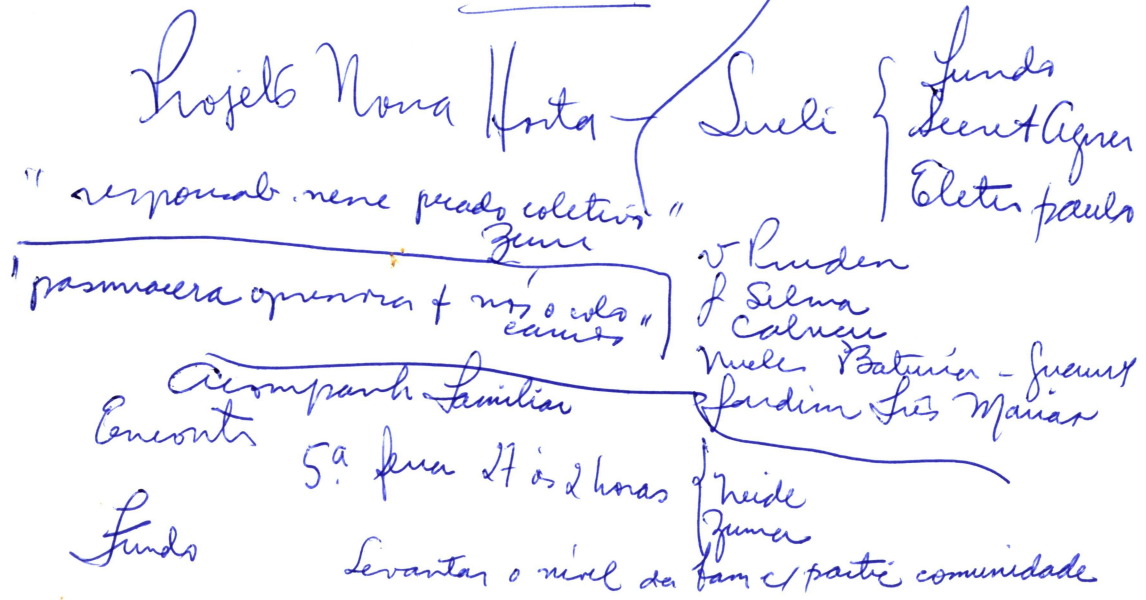 Projeto Nova Horta - Sueli { Fundo
Secret Agner
Eletropaulo
" responsab. nesse coletivo "
Zuma
" + nós o colo
camos "
v Pruden
J Selma
Nucleo Batuíra -
Jardim Três Marias
Acompanh Familiar
Encontr
5ª feira 27 às 2 horas { Neide
Zuma
Fundo
Levantar o nível da fam c/ partic comunidade